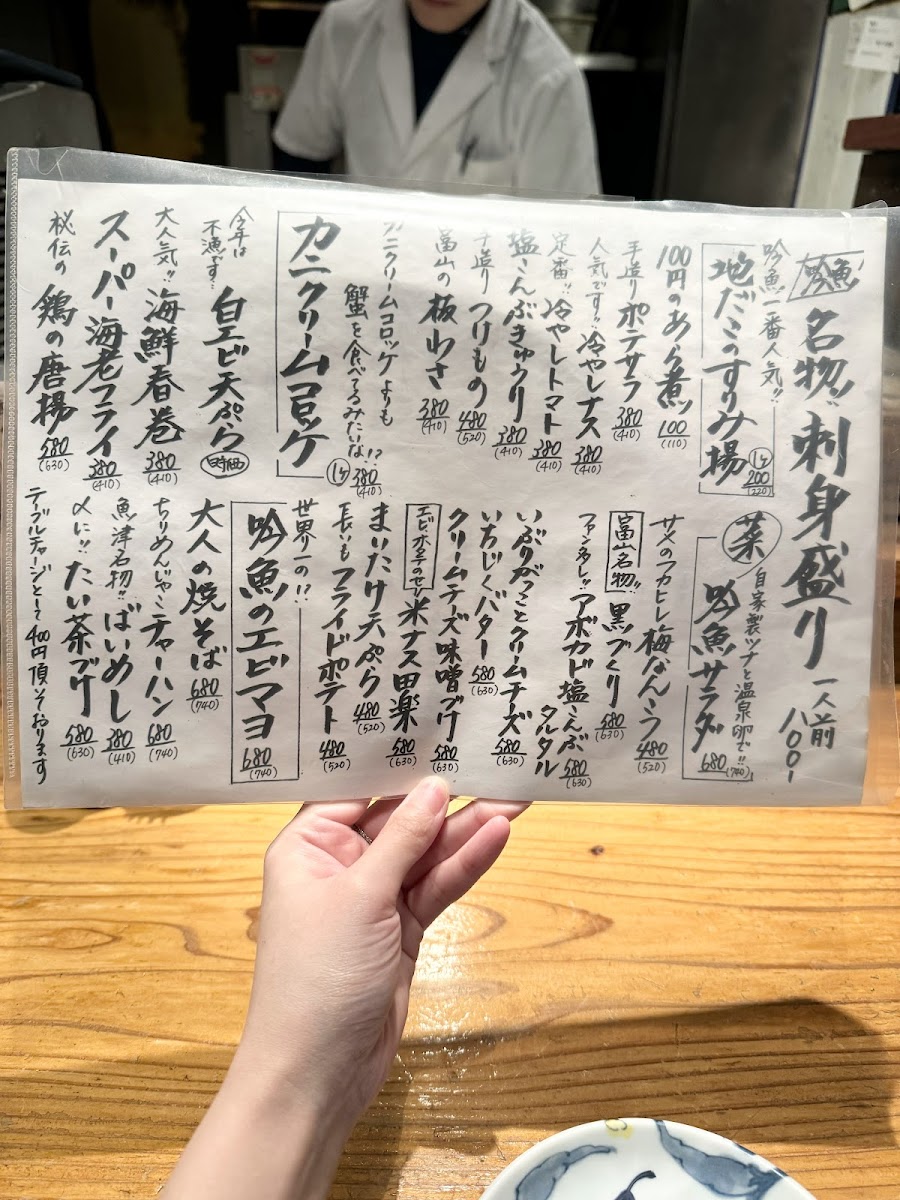 吟魚
名物!!刺身盛り 一人前 八〇〇-
吟魚一番人気!!
地だこのすりみ揚 1ヶ 200 (220)
100円のあら煮ッ 100 (110)
手造りポテサラ 380 (410)
人気です!!冷やしナス 380 (410)
定番!!冷やしトマト 380 (410)
塩こんぶきゅうり 380 (410)
手造りつけもの 480 (520)
富山の板わさ 380 (410)
カニクリームコロッケよりも
蟹を食べてるみたいな!?
カニクリームコロッケ 1ヶ 380 (410)
今年は不漁です…
白エビ天ぷら 時価
大人気!!海鮮春巻 380 (410)
スーパー海老フライ 380 (410)
秘伝の鶏の唐揚 580 (630)
菜
自家製ツナと温泉卵で!!
吟魚サラダ 680 (740)
サメのフカヒレと梅なんこつ 480 (520)
富山名物!!黒づくり 580 (630)
ファン多し!!アボカド塩こんぶタルタル 580 (630)
いぶりがっことクリームチーズ 580 (630)
いちじくバター 580 (630)
クリームチーズ味噌づけ 580 (630)
エビホタテのせ!!米ナス田楽 580 (630)
まいたけ天ぷら 480 (520)
長いもフライドポテト 480 (520)
世界一の!?
吟魚のエビマヨ 680 (740)
大人の焼そば 680 (740)
ちりめんじゃこチャーハン 680 (740)
魚津名物!!ばいめし 380 (410)
〆に!!たい茶づけ 580 (630)
テーブルチャージとして400円頂いております